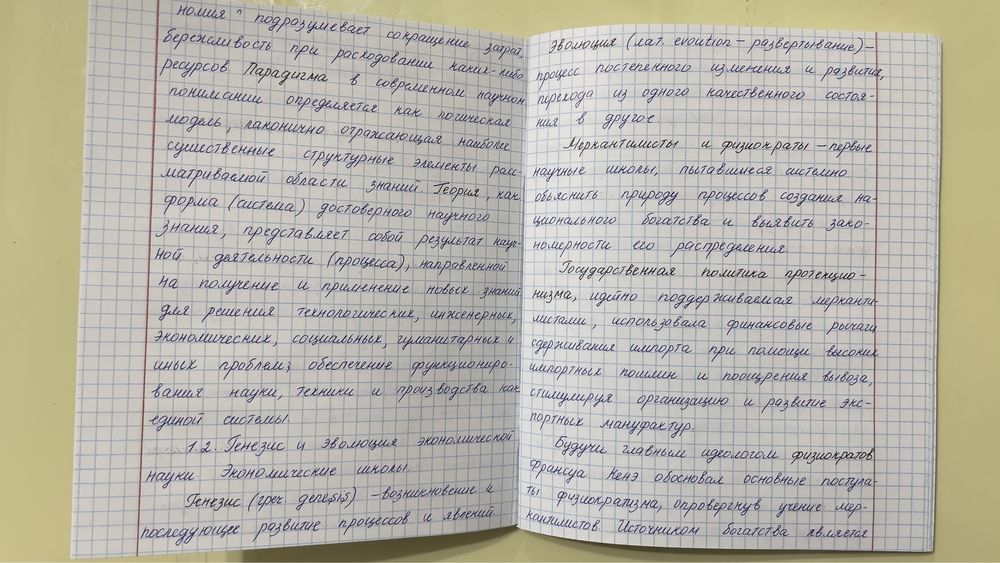 номия" подразумевает сокращение затрат,
бережливость при расходовании каких-либо
ресурсов. Парадигма в современном научном
понимании определяется как логическая
модель, лаконично отражающая наиболее
существенные структурные элементы расс-
матриваемой области знаний. Теория, как
форма (система) достоверного научного
знания, представляет собой результат науч-
ной деятельности (процесса), направленной
на получение и применение новых знаний
для решения технологических, инженерных,
экономических, социальных, гуманитарных и
иных проблем; обеспечение функциониро-
вания науки, техники и производства как
единой системы.
1.2. Генезис и эволюция экономической
науки. Экономические школы.
Генезис (греч. genesis) – возникновение и
последующее развитие процессов и явлений
Эволюция (лат. evoution – развертывание) –
процесс постепенного изменения и развития,
перехода из одного качественного состоя-
ния в другое
Меркантилисты и физиократы – первые
научные школы, пытавшиеся системно
объяснить природу процессов создания на-
ционального богатства и выявить зако-
номерности его распределения
Государственная политика протекцио-
низма, идейно поддерживаемая мерканти-
листами, использовала финансовые рычаги
сдерживания импорта при помощи высоких
импортных пошлин и поощрения вывоза,
стимулируя организацию и развитие экс-
портных мануфактур.
Будучи главным идеологом физиократов
Франсуа Кенэ обосновал основные постула-
ты физиократизма, опровергнув учение мер-
кантилистов Источником богатства является